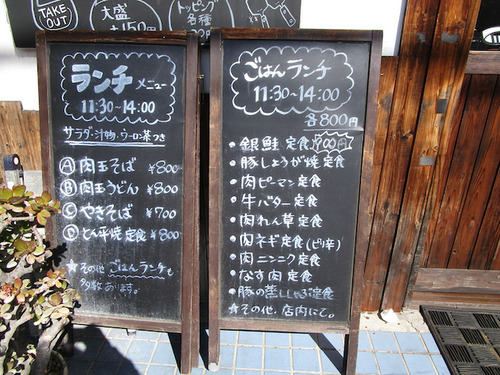 TAKE OUT
大盛
+150円
トッピング
各種
ランチメニュー
11:30~14:00
サラダ・汁物・ウーロン茶つき
Ⓐ 肉玉そば ¥800
Ⓑ 肉玉うどん ¥800
Ⓒ やきそば ¥700
Ⓓ とん平焼定食 ¥800
☆その他 ごはんランチも
多数あります。
ごはんランチ
11:30~14:00
各800円
・銀鮭 定食 900円
・豚しょうが焼定食
・肉ピーマン定食
・牛バター定食
・肉れん草定食
・肉ネギ定食(ピリ辛)
・肉ニンニク定食
・なす肉定食
・豚の蒸ししゃぶ定食
☆その他、店内にて。